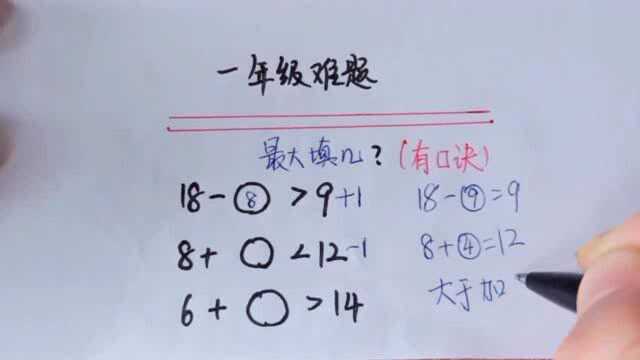 一年级难题
最大填几?(有口诀)
18-⑧>9+1 18-⑨=9
8+○<12-1 8+④=12
6+○>14 大于加